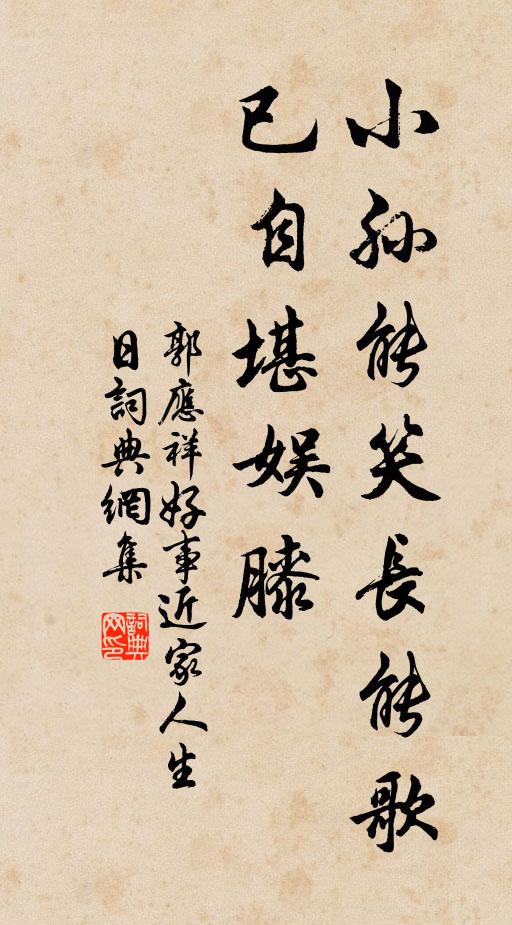 小孙能笑长能歌
已自堪娱膝
郭應祥好事近家人生
日詞典網集
詞典网印